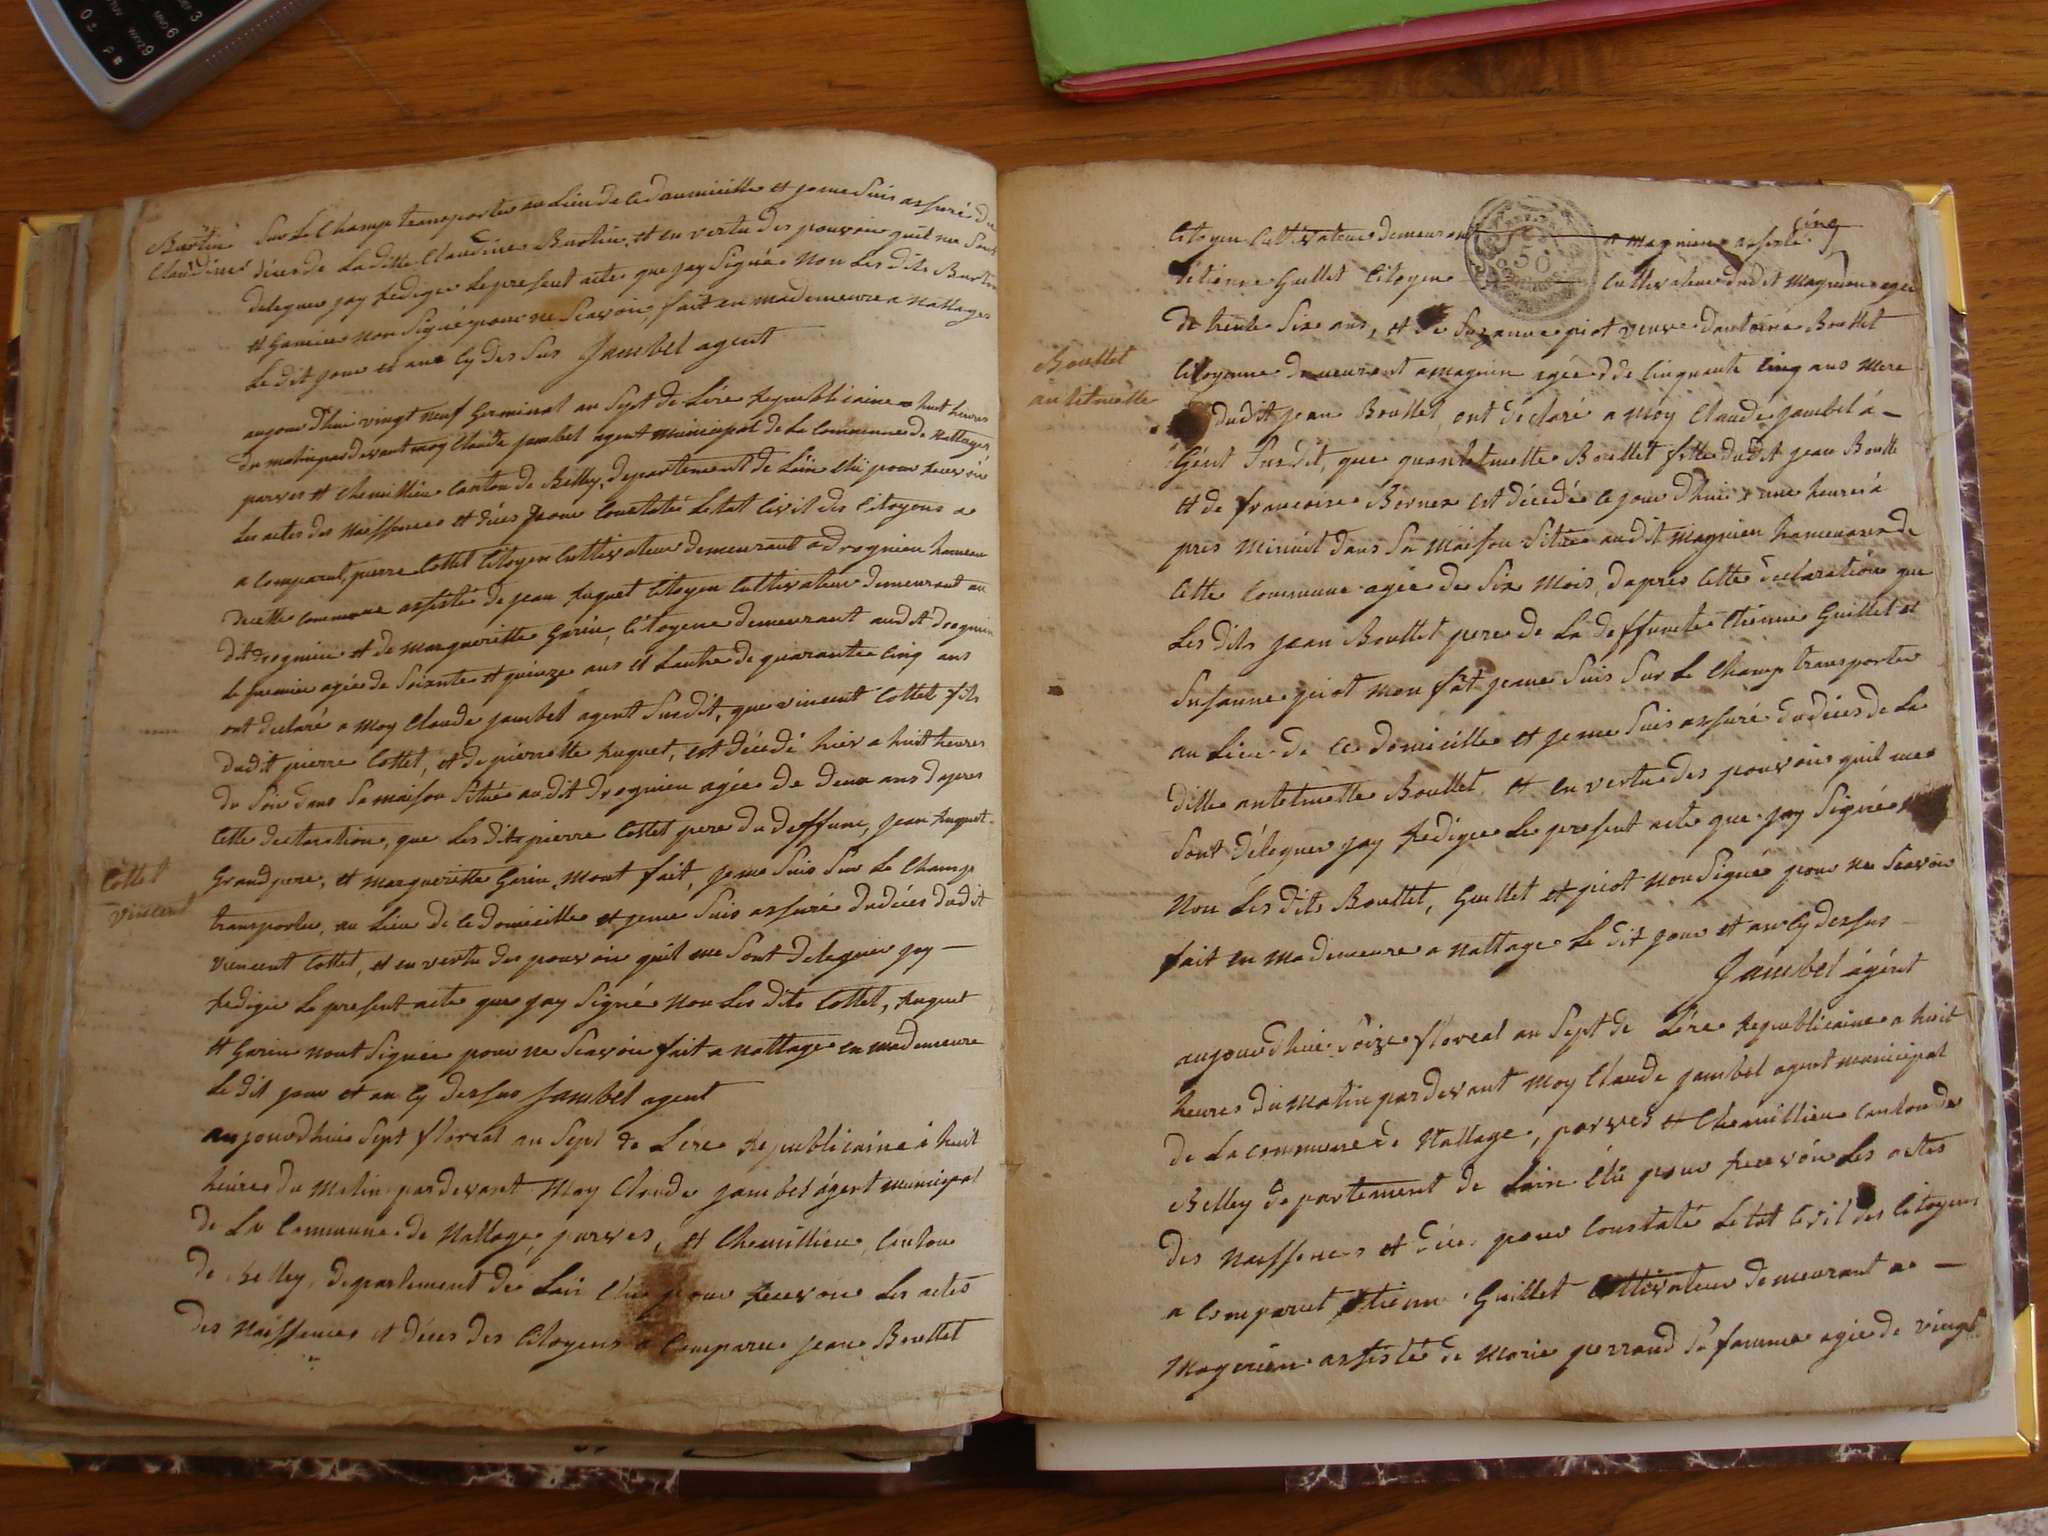 Bartin
Claudine
Sur Le Champ transporter au Lieu de ce daumicille et jeme Suis assuré du
déces de La ditte Claudine Bartin, et en vertu des pouvoir quil me Sont
deleguer jay Rediger Le present acte que jay Signée Non Les dits Bartin
et Garnier Non Signé pour ne Scavoir, fait en mademeure a Nattages
Le dit jour et an Cy dessus Jambel agent
aujourd'hui vingt neuf Germinal an Sept de Lére Republicaine a huit heures
du matin par devant moy Claude jambel agent municipal de La Commune de Nattages,
parves et Chemillieu Canton de Belley, departement de Lain Elü pour Recevoir
Les actes des Naissences et déces pour Constaté Letat Civil des Citoyens a
a Comparut, pierre Cottet Citoyen Cultivateur demeurant a drognieu hameau
decette Commune assisté de jean huguet Citoyen Cultivateur demeurant au
dit drognieu et de margueritte Garin, Citoyene demeurant audit drognieu
Le premier agée de Soixante et quinze ans et Lautre de quarante Cinq ans
ont declaré a Moy Claude jambel agent Susdit, que vincent Cottet fils
dudit pierre Cottet, et de pierrette huguet, est décédé hier a huit heures
du Soir dans Samaison Située audit drognieu agée de deux ans dapres
Cette declaration, que Les dits pierre Cottet pere du deffunc, jean huguet
Cottet
Vincent
Grand pere, et margueritte Garin, mont fait, jeme Suis Sur Le Champ
transporter, au Lieu de ce domicille et jeme Suis assuré dudéces dudit
vincent Cottet, et en vertu des pouvoir quil me Sont deleguer jay —
Rediger Le present acte que jay Signé Non Les dits Cottet, huguet
et Garin nont Signée pour ne Scavoir fait a Nattage en mademeure
Le dit jour et an Cy dessus Jambel agent
aujourdhui Sept floreal an Sept de Lére Republicaine à huit
heures du Matin pardevant Moy Claude jambel agent municipal
de La Commune de Nattage, parves, et Chemillieu, Canton
de Belley, departement de Lain Elü pour Recevoir Les actes
des Naissences et déces des Citoyens a Comparu jean Bouttet
cinq
Citoyen Cultivateur demeurant a magnieu assisté
detienne Guillet Citoyen Cultivateur dudit Magnieu agée
de trente Six ans, et de Suzanne piot veuve dantoine Bouttet
Bouttet
antelmette
Citoyenne demeurant a magnieu agée de Cinquante Cinq ans mere
dudit jean Bouttet, ont déclaré a Moy Claude jambel á —
Gént Susdit, que quantelmette Bouttet fille dudit jean Boutte
et de francoise Bernex est décédé ce jour d'hui a une heures á
pres Minuit dans Sa Maison Située audit Magnieu hameau de
Cette Commune agée de Six Mois, dapres Cette declaration que
Les dits jean Bouttet pere de La deffuncte Etienne Guillet et
Susanne piot mon fait jeme Suis Sur Le Champ transporter
au Lieu de ce domicille et jeme Suis assuré dudéces de La
ditte antelmette Bouttet, et en vertu des pouvoir quil me
Sont déleguer jay Rediger Le present acte que jay Signée
Non Les dits Bouttet, Guillet et piot non Signé pour ne Scavoir
fait en Mademeure a Nattage Le dit jour et an Cy dessus
Jambel ágént
aujourdhui Seize floreal an Sept de Lére Republicaine a huit
heures du matin pardevant Moy Claude jambel agent municipal
de La commune de Nattage, parves et Chemillieu Canton de
Belley departement de Lain Elü pour Recevoir Les actes
des Naissences et déces pour Constaté Letat Civil des Citoyens
a Comparut Etienne Guillet Cultivateur demeurant a —
Magnieu assisté de Marie perraud Sa famme agée de vingt